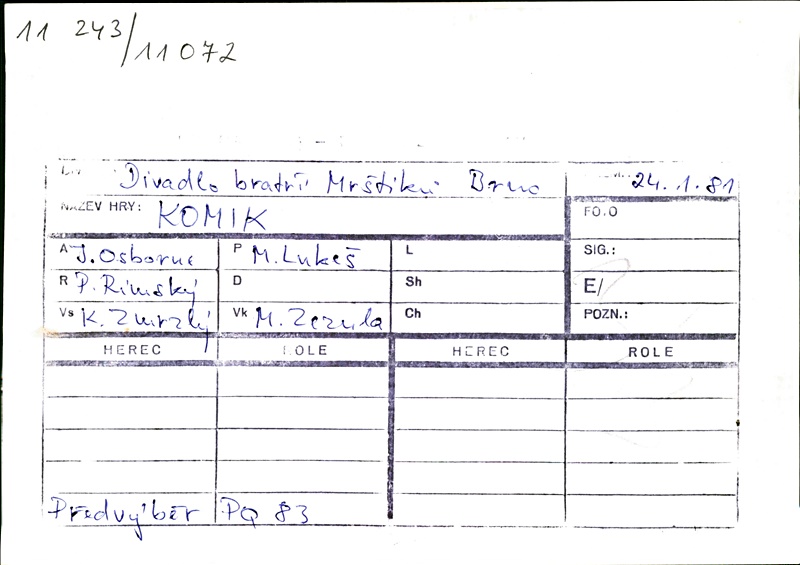 11 243/11072
Divadlo bratří Mrštíků Brno 24.1.81
NÁZEV HRY: KOMIK FO.O
A J. Osborne P M. Lukeš L SIG.:
R P. Rímský D Sh E/
Vs K. Zmrzlý Vk M. Zezula Ch POZN.:
HEREC ROLE HEREC ROLE
Předvýběr PQ 83